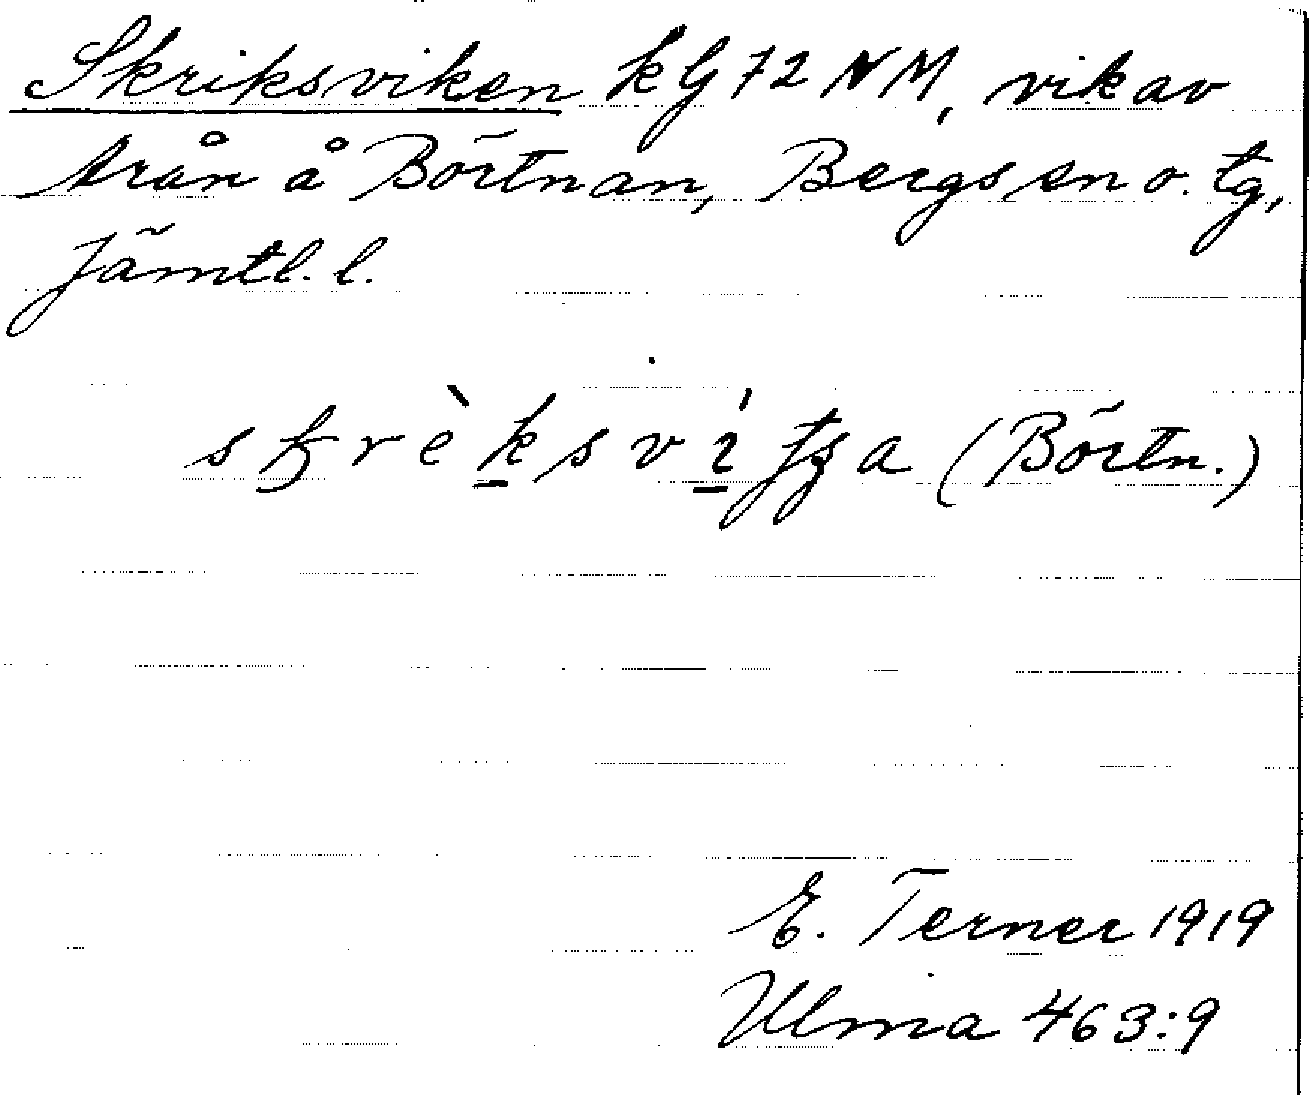 Skriksviken kG 72 NM, vik av
från å Börtnan, Bergs sn o. tg,
Jämtl. l.
(Börtn.)
E. Terner 1919
Ulma 463:9